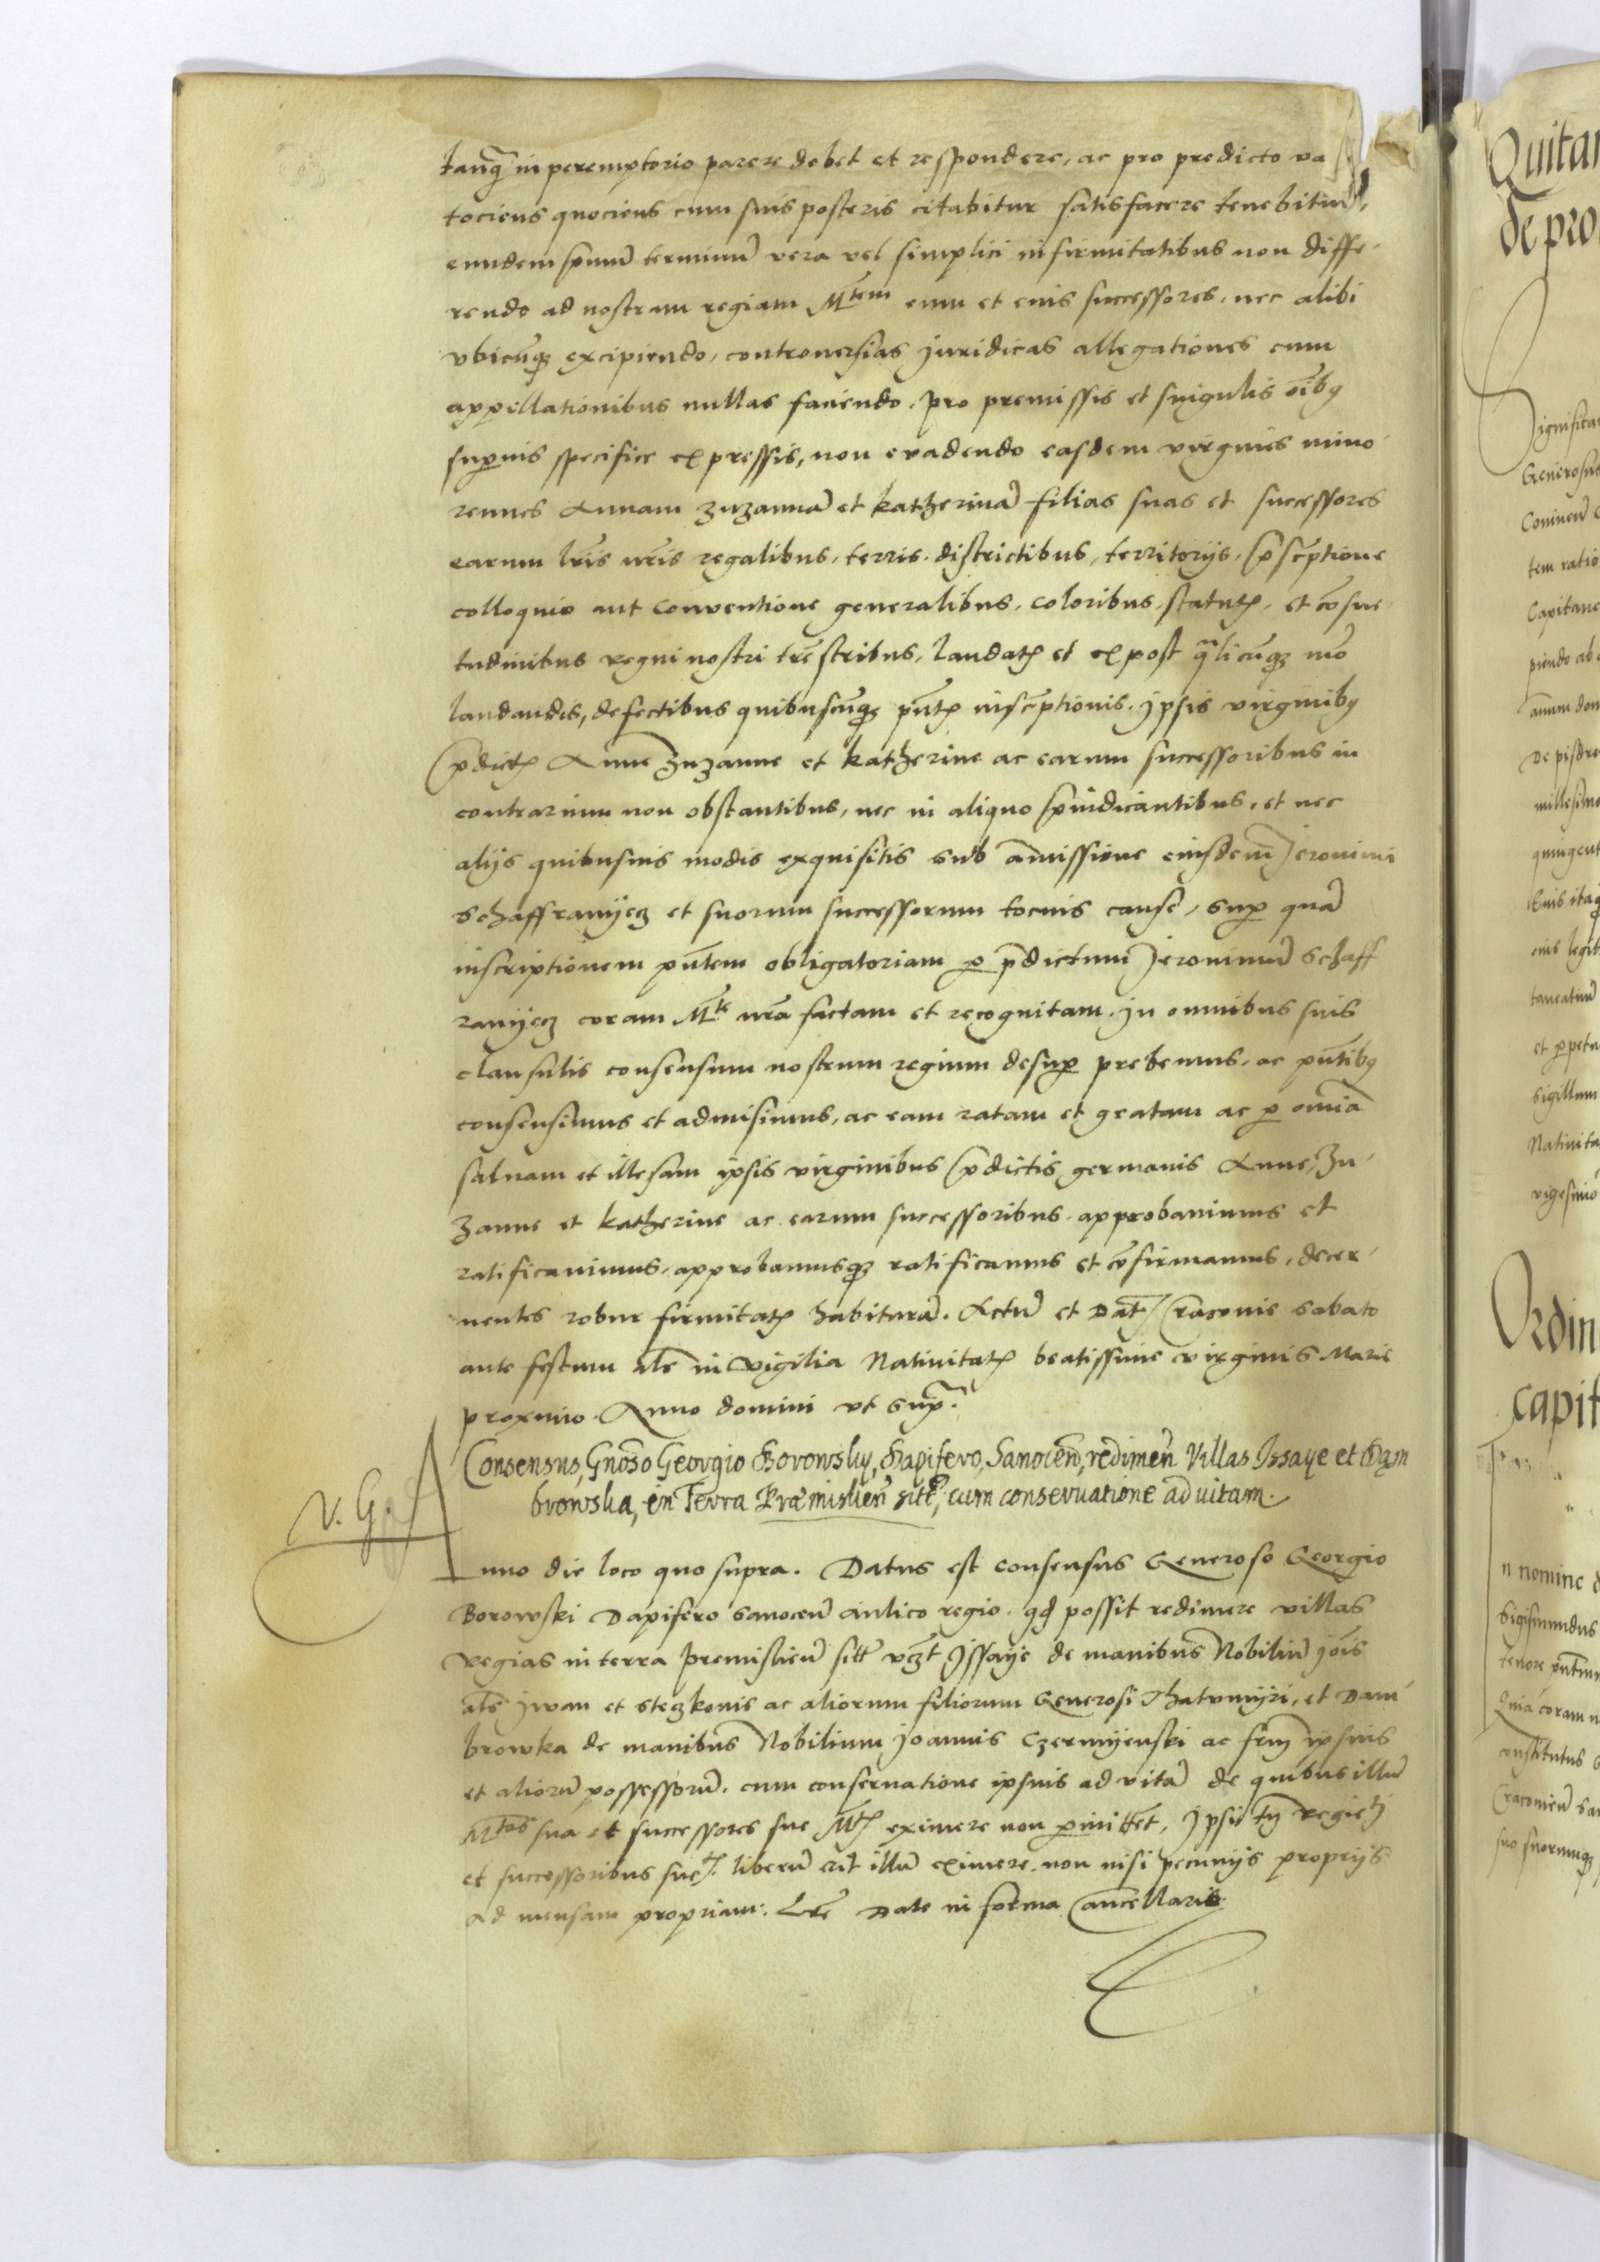 tanq̃ in peremptorio parere debet et respondere, ac pro predicto va
tociens quociens cum suis posteris citabitur satisfacere tenebitur,
eundem terminũ vera vel simplici infirmitatibus non diffe-
rendo ad nostram regiam Mtem eum et eius successores, nec alibi
vbicũqȝ excipiendo, controuersias juridicas allegationes cum
appellationibus nullas faciendo, pro premissis et singulis oĩbꝯ
suꝑius specifice expressis, non euadendo easdem virgines mino
rennes Annam Zuzannã et Katherinã filias suas et successores
earum lr̃is nr̃is regalibus, terris, districtibus, territorijs, ꝓscptione
colloquio aut conventione generalibus, coloribus, statutꝭ, et cõsue-
tudinibus regni nostri tr̃estribus, laudatꝭ et ex post q̃licũqȝ mõ
laudandis, defectibus quibuscũqȝ pñtꝭ inscptionis, ipsis virginibꝯ
ꝓdictꝭ Anne Zuzanne et Katherine ac earum successoribus in
contrarium non obstantibus, nec in aliquo ꝓiudicantibus, et nec
alijs quibusuis modis exquisitis sub amissione eiusdem Jeronimi
Schaffranyecz et suorum successorum tocius cause, suꝑ quã
inscriptionem pñtem obligatoriam ꝑ p̃dictum Jeronimũ Schaff
ranyecz coram Mte nr̃a factam et recognitam, in omnibus suis
clausulis consensum nostrum regium desuꝑ prebemus, ac pñtibꝯ
consensimus et admisimus, ac eam ratam et gratam ac ꝑ omnia
saluam et illesam ipsis virginibus ꝓdictis germanis Anne, Zu-
zanne et Katherine ac earum successoribus approbauimus et
ratificauimus, approbamusqȝ ratificamus et cõfirmamus, decer-
nentes robur firmitatꝭ habiturã. Actũ et Dat̃ Cracouie sabato
ante festum als̃ in vigilia Natiuitatꝭ beatissime virginis Marie
proximo Anno domini vt supͣ.
Consensus, Gñoso Georgio Borowsky, Dapifero, Sanocen̄, redimen̄ Villas Issaye et Dam
browska, in Terra Præmislien̄ sitt̃, cum conseruatione ad uitam.
V. G.
Anno die loco quo supra. Datus est consensus Generoso Georgio
Borowski Dapifero Sanocen̄ aulico regio, qd̃ possit redimere villas
Regias in terra premislien̄ sitt̃ vcȝt Jssaije de manibus Nobiliũ jois̃
als̃ jwan et steczkonis ac aliorum filiorum Generosi et Dam-
browka de manibus Nobilium joannis Czermijenski ac ipsius
et aliorũ possessorũ, cum conseruatione ipsius ad vitã de quibus illũ
Mtas sua et successores sue Mtꝭ eximere non ꝑmittet, jpsi tñ regie
et successoribus sue liberũ erit illũ eximere, non nisi pecunijs proprijs
ad mensam propriam. Lr̃e Date in forma Cancellarie
Quitan
de pro
Generosus
tem ratio
Capitane
piendo ab
de pisdre
millesimo
quingent
cuius itaqȝ
et ꝑpetu
sigillum
Natiuita
vigesimo
Ordin
capit
n nomine
Sigismundus
tenore pñtium
Quia coram
constitutus
Cracouien̄
suo suorumqȝ